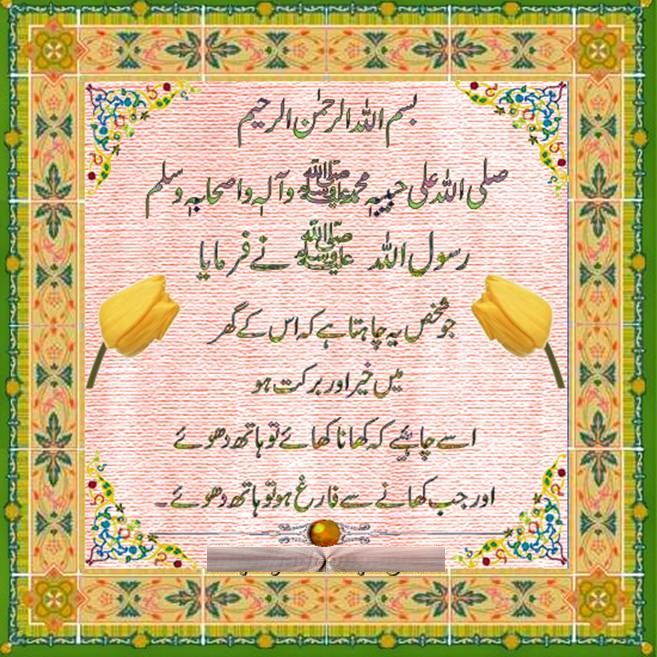 بسم اللہ الرحمٰن الرحیم
صلی اللہ علی حبیبہٖ محمدﷺ وآلہٖ واصحابہٖ وسلم
رسول اللہ ﷺ نے فرمایا
جو شخص یہ چاہتا ہے کہ اس کے گھر
میں خیر اور برکت ہو
اسے چاہیے کہ کھانا کھائے تو ہاتھ دھوئے
اور جب کھانے سے فارغ ہو تو ہاتھ دھوئے۔